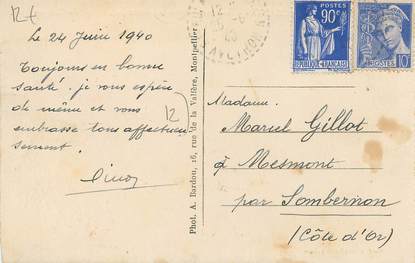 12f
12
Le 24 Juin 1940
Toujours en bonne
santé. je vous espère
de même et vous
12
embrasse tous affectueu
sement.
Phot. A. Bardou, 16, rue de la Valfère, Montpellier
AVEYRON
POSTES
90c
RÉPUBLIQUE FRANÇAISE
POSTES
10c
Madame
Marcel Gillot
à Mesmont
par Sombernon
(Côte d'Or)